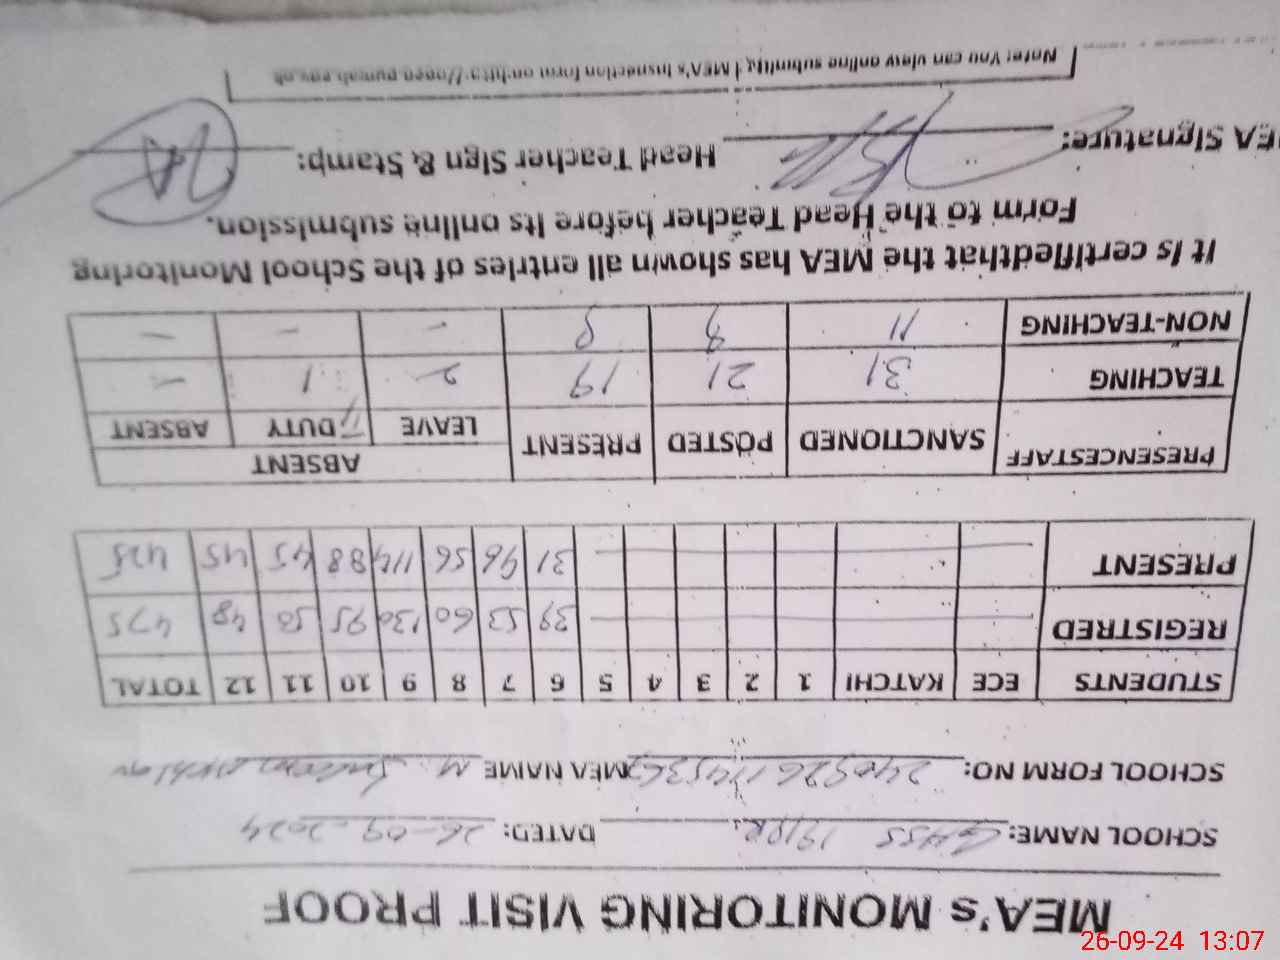 MEA's MONITORING VISIT PROOF
SCHOOL NAME: GHSS 19/8R. DATED: 26-09-2024
SCHOOL FORM NO: MEA NAME M.
STUDENTS ECE KATCHI 1 2 3 4 5 6 7 8 9 10 11 12 TOTAL
REGISTRED 39 53 60 130 95 50 48 475
PRESENT 31 46 56 114 88 45 45 425
PRESENCESTAFF SANCTIONED POSTED PRESENT ABSENT
LEAVE DUTY ABSENT
TEACHING 31 21 19 2 1 -
NON-TEACHING 11 - - -
It is certifiedthat the MEA has shown all entries of the School Monitoring
Form to the Head Teacher before its online submission.
EA Signature: Head Teacher Sign & Stamp:
Note: You can view online submitted MEA's Inspection form on http://open.punjab.gov.pk
26-09-24 13:07